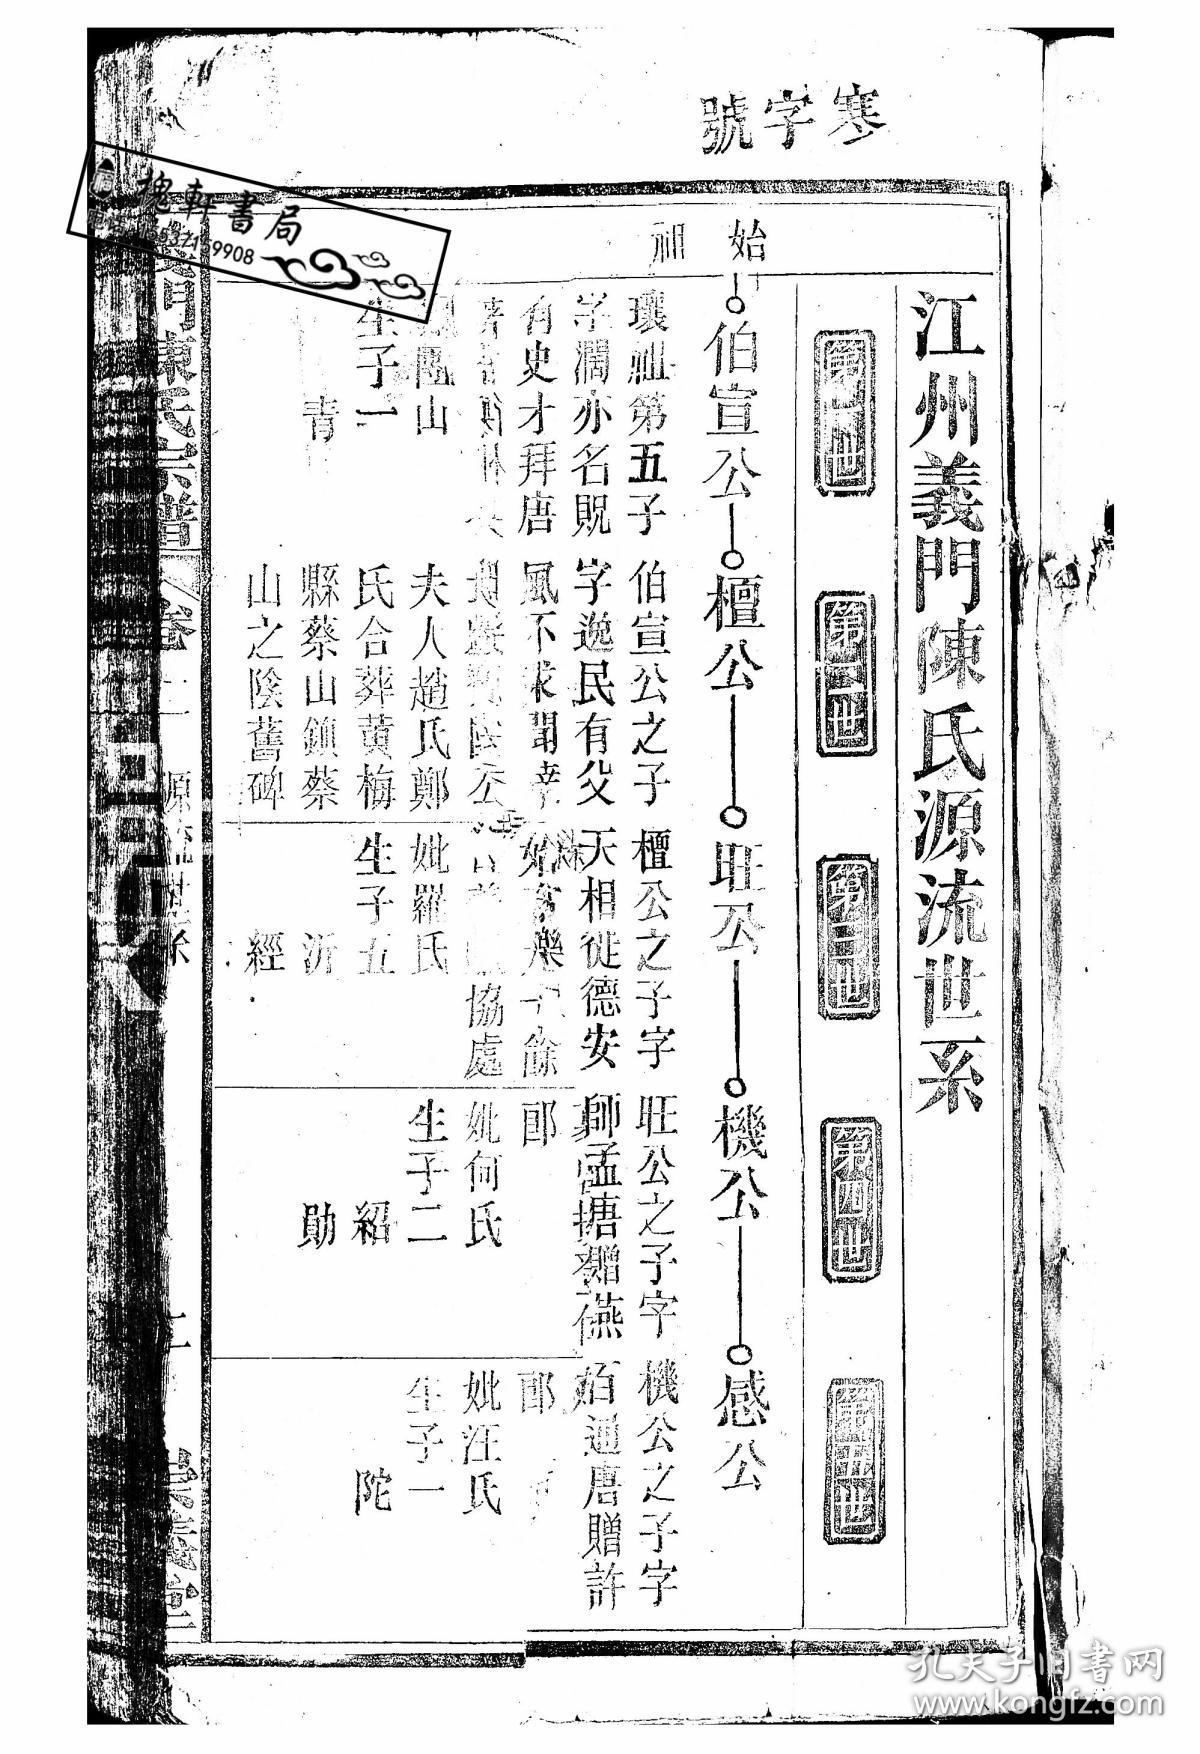 寒字號
江州義門陳氏源流世系
第一世
第二世
第三世
第四世
第五世
始祖
伯宣公
檀公
旺公
機公
感公
瓌祖第五子
字濶亦名貺
有史才拜唐
山
生子一
青
伯宣公之子
字逸民有父
風不求聞達
夫人趙氏鄭
氏合葬黄梅
縣蔡山鎮蔡
山之陰舊碑
檀公之子字
天相徙德安
協處
妣羅氏
生子五
沂
經
旺公之子字
師孟
妣何氏
生子二
紹
勛
機公之子字
伯通唐贈許
妣汪氏
生子一
陀
義門陳氏宗譜
卷二
源流世系
二
崇義堂
槐軒書局
孔夫子旧書网
www.kongfz.com